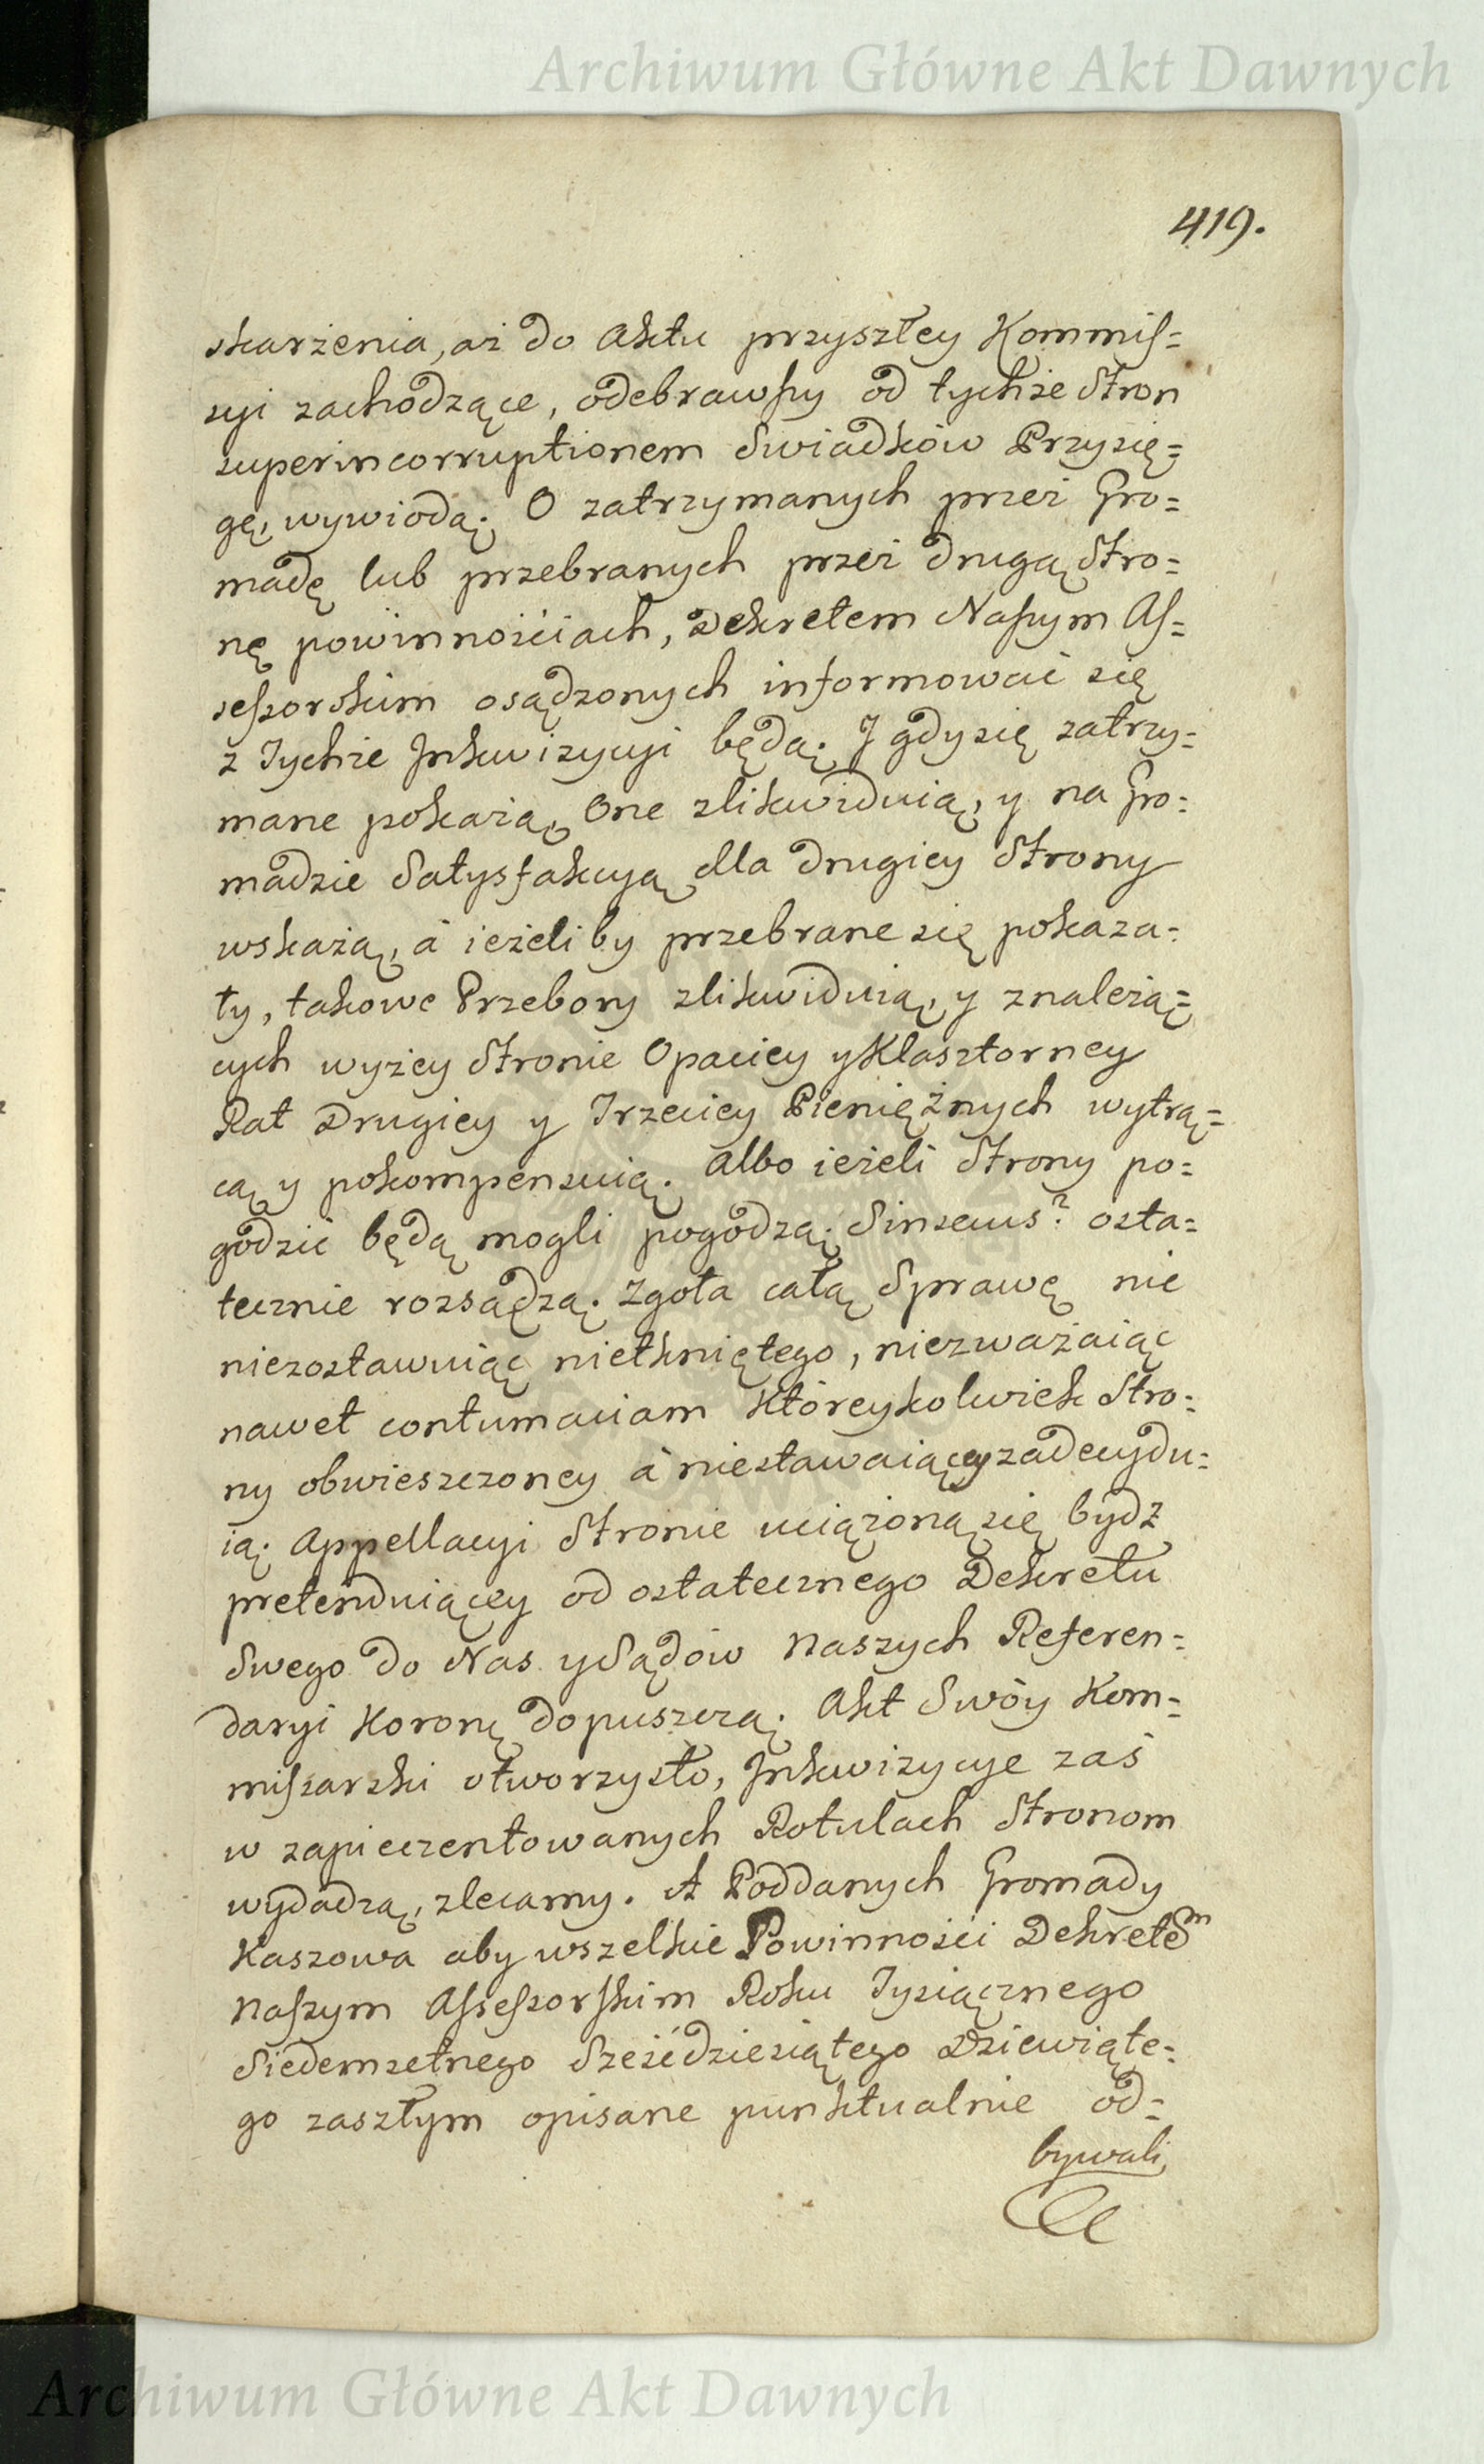 Archiwum Główne Akt Dawnych
419.
skarżenia, aż do Aktu przyszłey Kommis=
syi zachodzące, odebrawszy od tychże Stron
superincorruptionem Swiadków Przysię=
gę, wywiodą. O zatrzymanych przez Gro=
madę lub przebranych przez drugą Stro=
nę powinnościach, Dekretem Naszym As=
sessorskim osądzonych informować się
z Tychże Inkwizycyi będą. J gdy się zatrzy=
mane pokażą, One zlikwiduią, y na Gro=
madzie Satysfakcyą dla drugiey Strony
wskażą, à ieżeliby przebrane się pokaza=
ły, takowe Przebory zlikwiduią, y znależą=
cych wyżey Stronie Opaciey y Klasztorney
Rat Drugiey y Trzeciey Pieniężnych wytrą=
cą y pokompensuią. Albo ieżeli Strony po=
godzić będą mogli pogodzą. Sinsecus? osta=
tecznie rozsądzą. Zgoła całą Sprawę nic
niezostawuiąc nietkniętego, niezważaiąc
nawet contumaciam któreykolwiek Stro=
ny obwieszczoney à niestawaiącey zadecydu=
ią. Appellacyi Stronie uciążoną się bydź
pretenduiącey od ostatecznego Dekretu
Swego do Nas y Sądów Naszych Referen=
daryi Koronę dopuszczą. Akt Swóy Kom=
missarski otworzysto, Inkwizycye zaś
w zapieczentowanych Rotulach Stronom
wydadzą, zlecamy. A Poddanych Gromady
Kaszowa aby wszelkie Powinności Dekretem
Naszym Assessorskim Roku Tysiącznego
Siedemsetnego Sześćdziesiątego Dziewiąte=
go zaszłym opisane punktualnie od=
bywali
Archiwum Główne Akt Dawnych